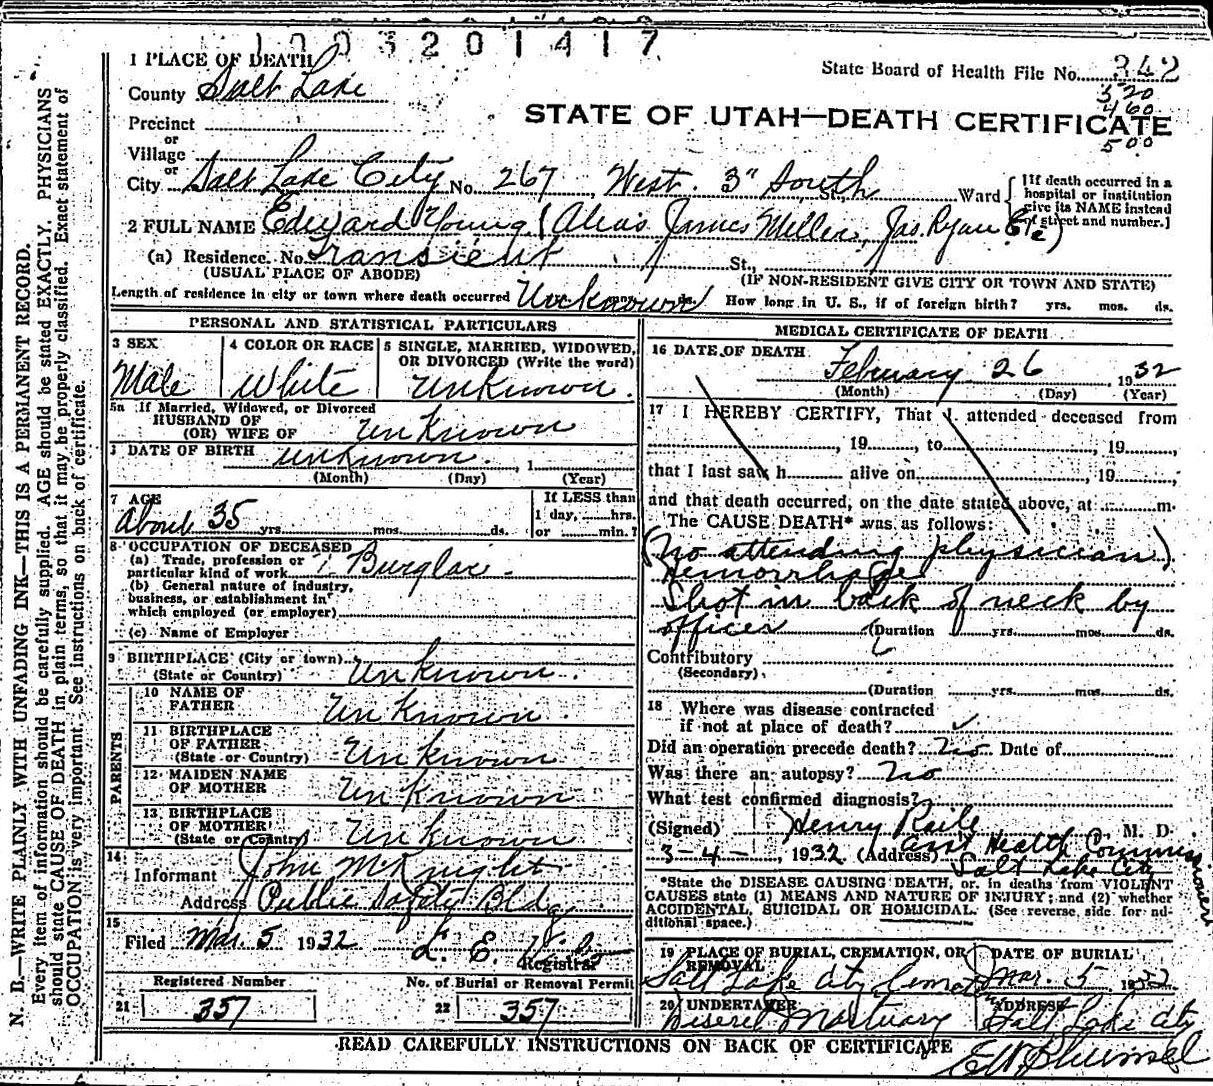 1003201417
State Board of Health File No. 342
320
460
500
1 PLACE OF DEATH
County Salt Lake
STATE OF UTAH—DEATH CERTIFICATE
Precinct
or
Village
or
City Salt Lake City No. 267 West 3" South St., Ward
[If death occurred in a hospital or institution give its NAME instead of street and number.]
2 FULL NAME Edward Young (Alias James Miller, Jas. Ryan Etc)
(a) Residence. No. Transient St.,
(USUAL PLACE OF ABODE) (IF NON-RESIDENT GIVE CITY OR TOWN AND STATE)
Length of residence in city or town where death occurred Unknown How long in U. S., if of foreign birth? yrs. mos. ds.
PERSONAL AND STATISTICAL PARTICULARS
3 SEX
Male
4 COLOR OR RACE
White
5 SINGLE, MARRIED, WIDOWED, OR DIVORCED (Write the word)
Unknown.
5a If Married, Widowed, or Divorced
HUSBAND OF
(OR) WIFE OF Unknown
DATE OF BIRTH unknown. , 1
(Month) (Day) (Year)
7 AGE
About 35 yrs. mos. ds.
If LESS than
1 day, hrs.
or min.?
8 OCCUPATION OF DECEASED
(a) Trade, profession or
particular kind of work ? Burglar.
(b) General nature of industry,
business, or establishment in
which employed (or employer)
(c) Name of Employer
9 BIRTHPLACE (City or town)
(State or Country) Unknown.
PARENTS
10 NAME OF
FATHER Unknown.
11 BIRTHPLACE
OF FATHER
(State or Country) Unknown
12 MAIDEN NAME
OF MOTHER Unknown
13 BIRTHPLACE
OF MOTHER
(State or Country) Unknown
14
Informant John McKnight
Address Public Safety Bldg
15
Filed Mar. 5 1932 L. E.
Registrar
Registered Number
21 357
No. of Burial or Removal Permit
22 357
MEDICAL CERTIFICATE OF DEATH
16 DATE OF DEATH
February 26, 1932
(Month) (Day) (Year)
17 I HEREBY CERTIFY, That I attended deceased from
, 19 , to , 19
that I last saw h alive on , 19 ,
and that death occurred, on the date stated above, at m.
The CAUSE DEATH* was as follows:
(No attending physician)
Hemorrhage
Shot in back of neck by
officer (Duration yrs. mos. ds.
Contributory
(Secondary)
(Duration yrs. mos. ds.
18 Where was disease contracted
if not at place of death? ✓
Did an operation precede death? No Date of
Was there an autopsy? No
What test confirmed diagnosis?
(Signed) Henry Raile, M. D.
3-4-, 1932 (Address) asst Health Commissioner
Salt Lake City
*State the DISEASE CAUSING DEATH, or in deaths from VIOLENT
CAUSES state (1) MEANS AND NATURE OF INJURY; and (2) whether
ACCIDENTAL, SUICIDAL OR HOMICIDAL. (See reverse side for ad-
ditional space.)
19 PLACE OF BURIAL, CREMATION, OR REMOVAL
Salt Lake City
DATE OF BURIAL
Mar. 5 1932
20 UNDERTAKER
Mortuary
ADDRESS
Salt Lake City
READ CAREFULLY INSTRUCTIONS ON BACK OF CERTIFICATE
N. B.—WRITE PLAINLY WITH UNFADING INK—THIS IS A PERMANENT RECORD.
Every item of information should be carefully supplied. AGE should be stated EXACTLY. PHYSICIANS
should state CAUSE OF DEATH in plain terms, so that it may be properly classified. Exact statement of
OCCUPATION is very important. See instructions on back of certificate.